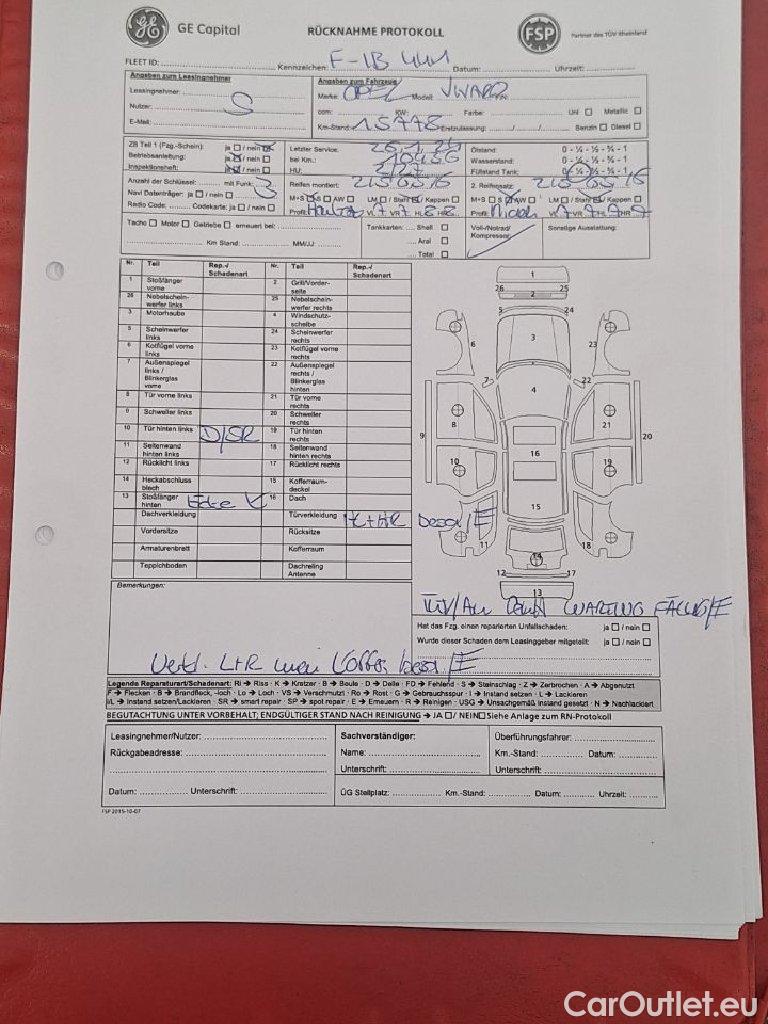 GE Capital
RÜCKNAHME PROTOKOLL
FSP
Partner des TÜV Rheinland
FLEET ID: Kennzeichen: F-IB Datum: Uhrzeit:
Angaben zum Leasingnehmer
Angaben zum Fahrzeug
Leasingnehmer:
Marke: OPEL Modell: VIVARO
Nutzer: S
ccm: KW: Farbe: Uni ☐ Metallic ☐
E-Mail:
Km-Stand: 15778 Erstzulassung: / / Benzin ☐ Diesel ☐
ZB Teil 1 (Fzg.-Schein): ja ☐ / nein
Letzter Service:
Ölstand: 0 - ¼ - ½ - ¾ - 1
Betriebsanleitung: ja / nein ☐
bei Km.: 10456
Wasserstand: 0 - ¼ - ½ - ¾ - 1
Inspektionsheft: ja / nein ☐
HU:
Füllstand Tank: 0 - ¼ - ½ - ¾ - 1
Anzahl der Schlüssel: mit Funk: 3
Reifen montiert: 215 65 16
2. Reifensatz: 215 65 16
Navi Datenträger: ja ☐ / nein ☐
M+S S ☐ AW ☐ LM ☐ / Stahl / Kappen ☐
M+S ☐ S AW ☐ LM ☐ / Stahl / Kappen ☐
Radio Code: Codekarte: ja ☐ / nein ☐
Profil: VL 7 VR 7 HL 8 HR 8
Profil: VL 7 VR 7 HL 7 HR 7
Tacho ☐ Motor ☐ Getriebe ☐ erneuert bei:
Tankkarten: Shell ☐
Aral ☐
Total ☐
Voll-/Notrad/
Kompressor:
Sonstige Ausstattung:
Km Stand: MM/JJ
Nr. Teil Rep.-/ Schadenart Nr. Teil Rep.-/ Schadenart
1 Stoßfänger vorne 2 Grill/Vorderseite
26 Nebelscheinwerfer links 25 Nebelscheinwerfer rechts
3 Motorhaube 4 Windschutzscheibe
5 Scheinwerfer links 24 Scheinwerfer rechts
6 Kotflügel vorne links 23 Kotflügel vorne rechts
7 Außenspiegel links / Blinkerglas vorne 22 Außenspiegel rechts / Blinkerglas hinten
8 Tür vorne links 21 Tür vorne rechts
9 Schweller links 20 Schweller rechts
10 Tür hinten links D/SR 19 Tür hinten rechts
11 Seitenwand hinten links 18 Seitenwand hinten rechts
12 Rücklicht links 17 Rücklicht rechts
14 Heckabschlussblech 15 Kofferraumdeckel
13 Stoßfänger hinten Ecke K 16 Dach
Dachverkleidung Türverkleidung
Vordersitze Rücksitze
Armaturenbrett Kofferraum
Teppichboden Dachreling Antenne
1
26 25
2
5 24
3
6 23
7 22
4
8 21
9 20
16
10 19
15
11 18
14
12 17
13
Bemerkungen:
WARTUNG FÄLLIG/E
Hat das Fzg. einen reparierten Unfallschaden: ja ☐ / nein ☐
Wurde dieser Schaden dem Leasinggeber mitgeteilt: ja ☐ / nein ☐
Legende Reparaturart/Schadenart: RI → Riss · K → Kratzer · B → Beule · D → Delle · FD → Fehlend · S → Steinschlag · Z → Zerbrochen · A → Abgenutzt
F → Flecken · B → Brandfleck, -loch · Lo → Loch · VS → Verschmutzt · Ro → Rost · G → Gebrauchsspur · I → Instand setzen · L → Lackieren
I/L → Instand setzen/Lackieren · SR → smart repair · SP → spot repair · E → Erneuern · R → Reinigen · USG → Unsachgemäß instand gesetzt · N → Nachlackiert
BEGUTACHTUNG UNTER VORBEHALT; ENDGÜLTIGER STAND NACH REINIGUNG → JA ☐ / NEIN ☐ Siehe Anlage zum RN-Protokoll
Leasingnehmer/Nutzer:
Sachverständiger:
Überführungsfahrer:
Rückgabeadresse:
Name:
Km.-Stand: Datum:
Unterschrift:
Unterschrift:
Datum: Unterschrift:
ÜG Stellplatz: Km.-Stand: Datum: Uhrzeit:
FSP 2085-10-07
CarOutlet.eu